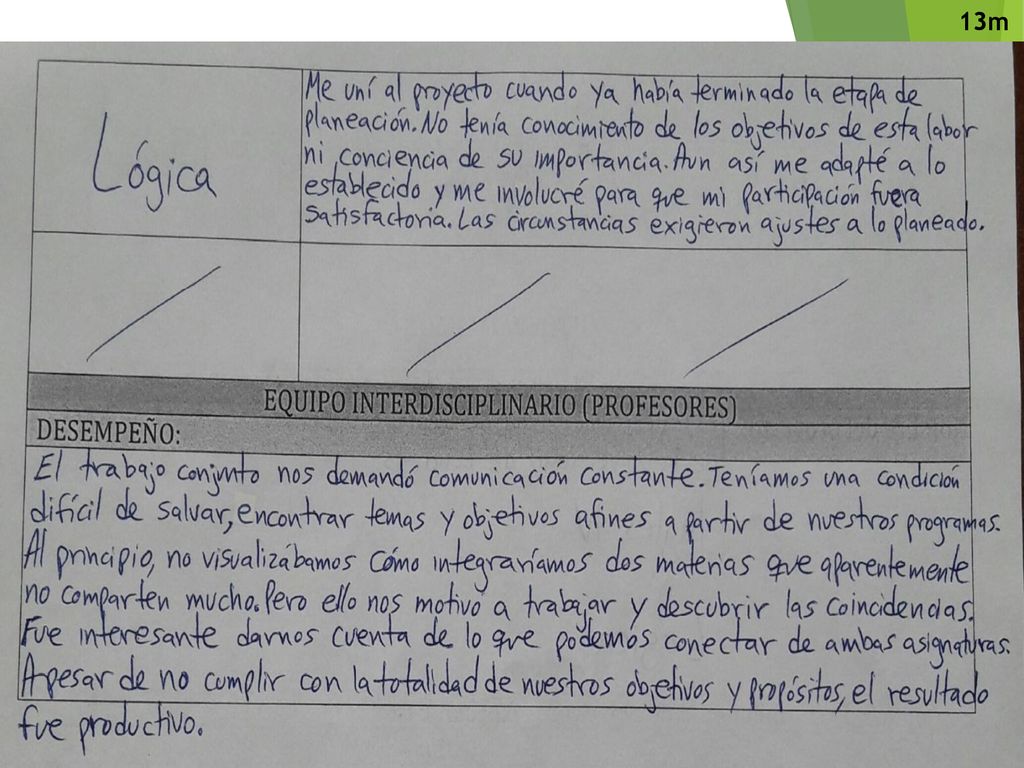 13m
Lógica
Me uní al proyecto cuando ya había terminado la etapa de
planeación. No tenía conocimiento de los objetivos de esta labor
ni conciencia de su importancia. Aun así me adapté a lo
establecido y me involucré para que mi participación fuera
satisfactoria. Las circunstancias exigieron ajustes a lo planeado.
EQUIPO INTERDISCIPLINARIO (PROFESORES)
DESEMPEÑO:
El trabajo conjunto nos demandó comunicación constante. Teníamos una condición
difícil de salvar, encontrar temas y objetivos afines a partir de nuestros programas.
Al principio, no visualizábamos cómo integraríamos dos materias que aparentemente
no comparten mucho. Pero ello nos motivó a trabajar y descubrir las coincidencias.
Fue interesante darnos cuenta de lo que podemos conectar de ambas asignaturas.
Apesar de no cumplir con la totalidad de nuestros objetivos y propósitos, el resultado
fue productivo.